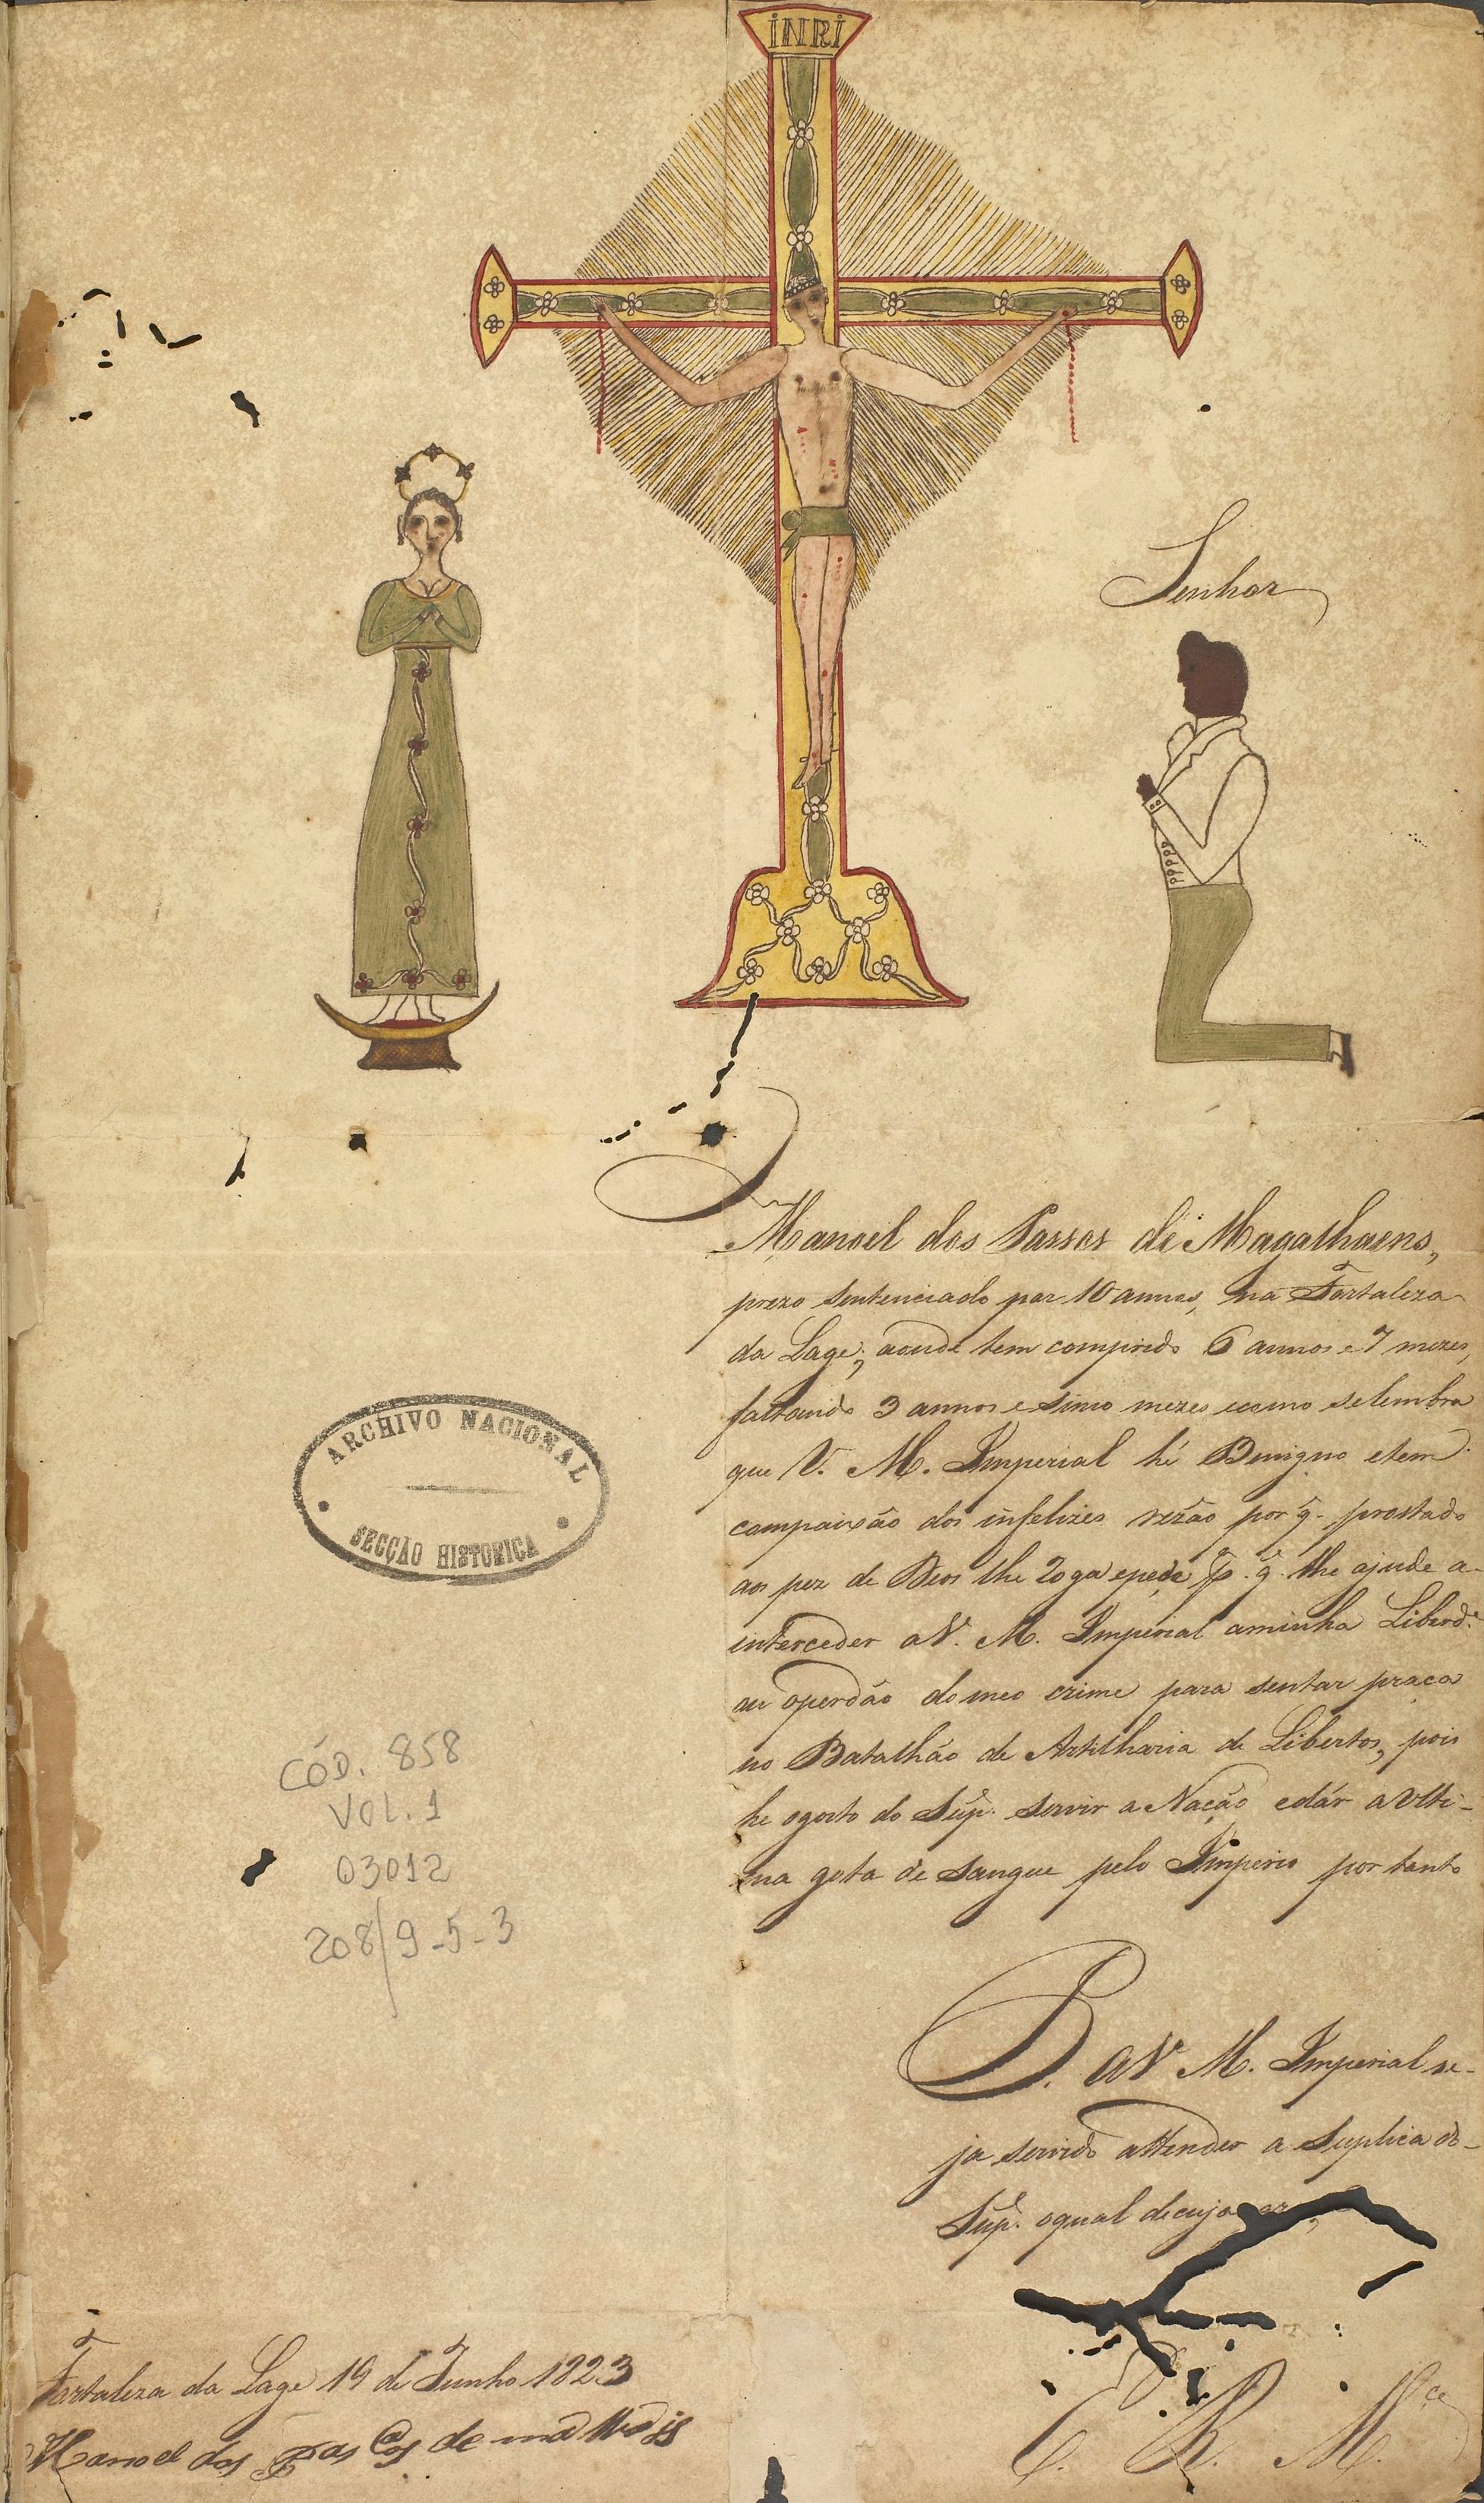 INRI
Senhor
Manoel dos Passos de Magalhaens,
prezo sentenciado por 10 annos, na Fortaleza
da Lage, aonde tem comprido 6 annos e 7 mezes,
faltando 3 annos e sinco mezes ecomo selembra
que V. M. Imperial hé Benigno etem
compaixão dos infelizes rezão por q. prostado
aos pez de Deos lhe roga epede p. q. lhe ajude a-
interceder aV. M. Imperial aminha Liberd.e
au operdão do meo crime para sentar praca
no Batalhão de Artilharia de Libertos, pois
he ogosto do Sup. servir a Nação edár aulti-
ma gota de sangue pelo Imperio por tanto
P. aV M. Imperial se-
ja servido attender a Suplica do-
Sup. oqual decuja
E. R. M.ce
Fortaleza da Lage 19 de Junho 1823
Manoel dos
ARCHIVO NACIONAL
SECÇÃO HISTORICA
CÓD. 858
VOL. 1
03012
208/9-5-3